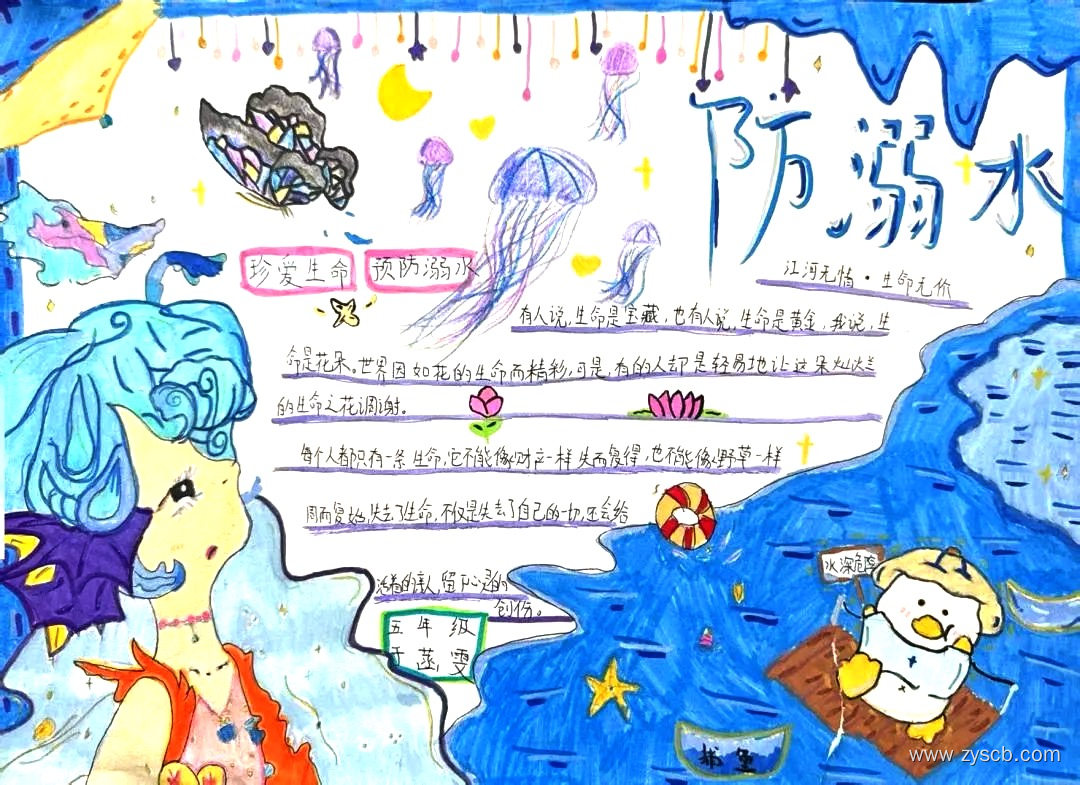 防溺水
江河无情·生命无价
珍爱生命 预防溺水
有人说,生命是宝藏,也有人说,生命是黄金,我说,生
命是花朵。世界因如花的生命而精彩,可是,有的人却是轻易地让这朵灿烂
的生命之花凋谢。
每个人都只有一条生命,它不能像财产一样失而复得,也不能像野草一样
周而复始,失去了生命,不仅是失去了自己的一切,还会给
活着的亲人留下心灵的
创伤。
五年级
雯
水深危险
www.zyscb.com